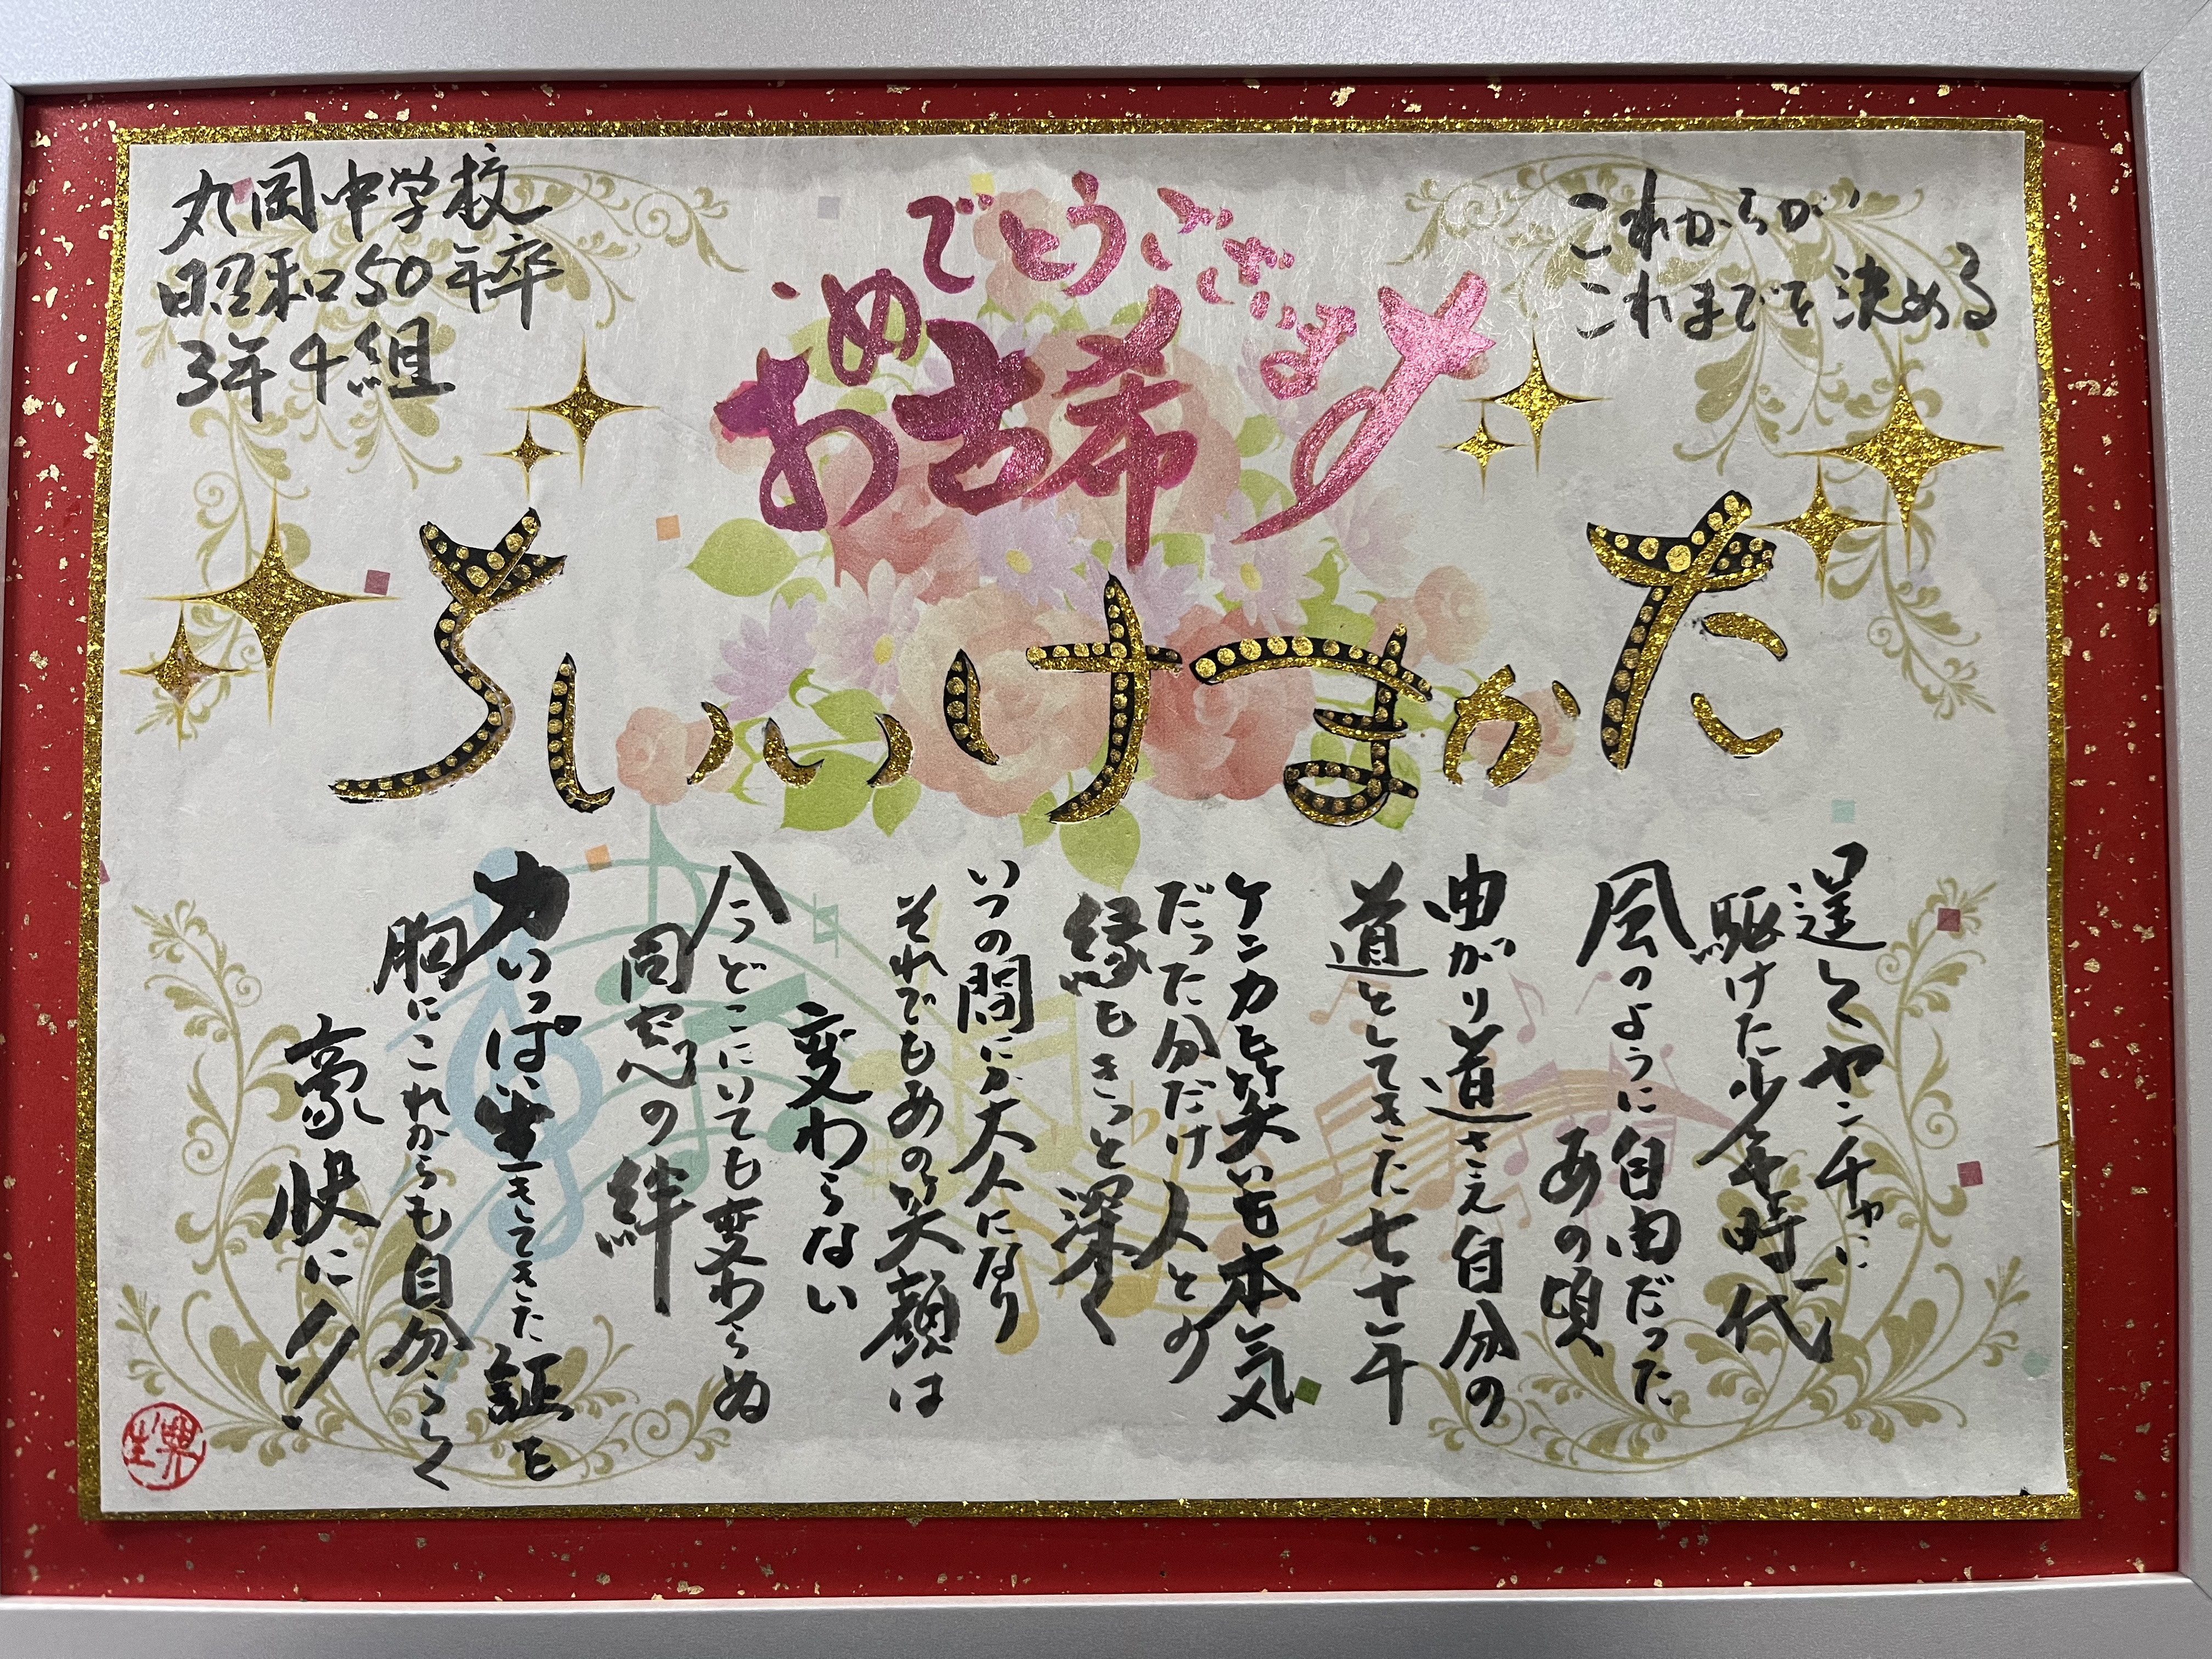 丸岡中学校
昭和50年卒
3年4組
古希
おめでとうございます
これからが
これまでを決める
たかまけいいち
逞しくヤンチャに
駆けた少年時代
風のように自由だった
あの頃
曲がり道さえ自分の
道としてきた七十年
ケンカも笑いも本気
だった分だけ人との
縁もきっと深く
いつの間にか大人になり
それでもあの笑顔は
変わらない
今どこにいても変わらぬ
同窓の絆
力いっぱい生きてきた証を
胸にこれからも自分らしく
豪快に!!